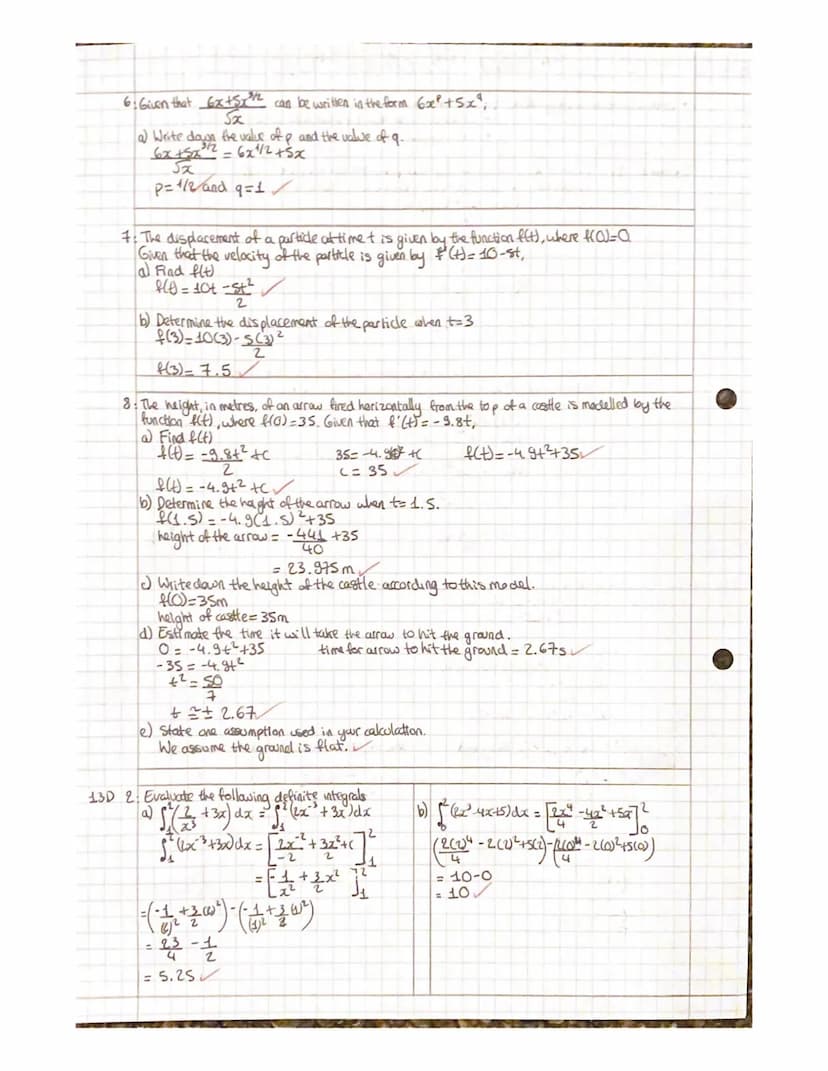 6: Given that 6x+5x^3/2 / √x can be written in the form 6x^p + 5x^q,
a) Write down the value of p and the value of q.
6x+5x^3/2 / √x = 6x^1/2 + 5x
p= 1/2 and q=1 ✓
7: The displacement of a particle at time t is given by the function f(t), where f(0)=0
Given that the velocity of the particle is given by f'(t)= 10-5t,
a) Find f(t)
f(t) = 10t - 5t²/2 ✓
b) Determine the displacement of the particle when t=3
f(3)=10(3) - 5(3)²/2
f(3)= 7.5 ✓
8: The height, in metres, of an arrow fired horizontally from the top of a castle is modelled by the
function f(t), where f(0)=35. Given that f'(t)= -9.8t,
a) Find f(t)
f(t)= -9.8t²/2 + c 35= -4.9(0)² + c f(t)= -4.9t²+35 ✓
c = 35 ✓
f(t) = -4.9t² + c ✓
b) Determine the height of the arrow when t= 1.5.
f(1.5) = -4.9(1.5)²+35
height of the arrow = -441/40 +35
= 23.975m ✓
c) Write down the height of the castle according to this model.
f(0)=35m
height of castle= 35m
d) Estimate the time it will take the arrow to hit the ground.
0 = -4.9t²+35 time for arrow to hit the ground = 2.67s ✓
-35 = -4.9t²
t² = 50/7
t ≅ ± 2.67 ✓
e) State one assumption used in your calculation.
We assume the ground is flat. ✓
13D 2: Evaluate the following definite integrals
a) ∫₁²(2/x³ + 3x) dx = ∫₁²(2x⁻³ + 3x)dx
∫₁²(2x⁻³+3x)dx = [2x⁻²/-2 + 3x²/2 + c]₁²
= [-1/x² + 3/2 x²]₁²
=(-1/(2)² + 3/2 (2)²) - (-1/(1)² + 3/2 (1)²)
= 23/4 - 1/2
= 5.25 ✓
b) ∫₀²(2x³-4x+5)dx = [2x⁴/4 - 4x²/2 + 5x]₀²
(2(2)⁴/4 - 2(2)²+5(2)) - (2(0)⁴/4 - 2(0)²+5(0))
= 10-0
= 10 ✓